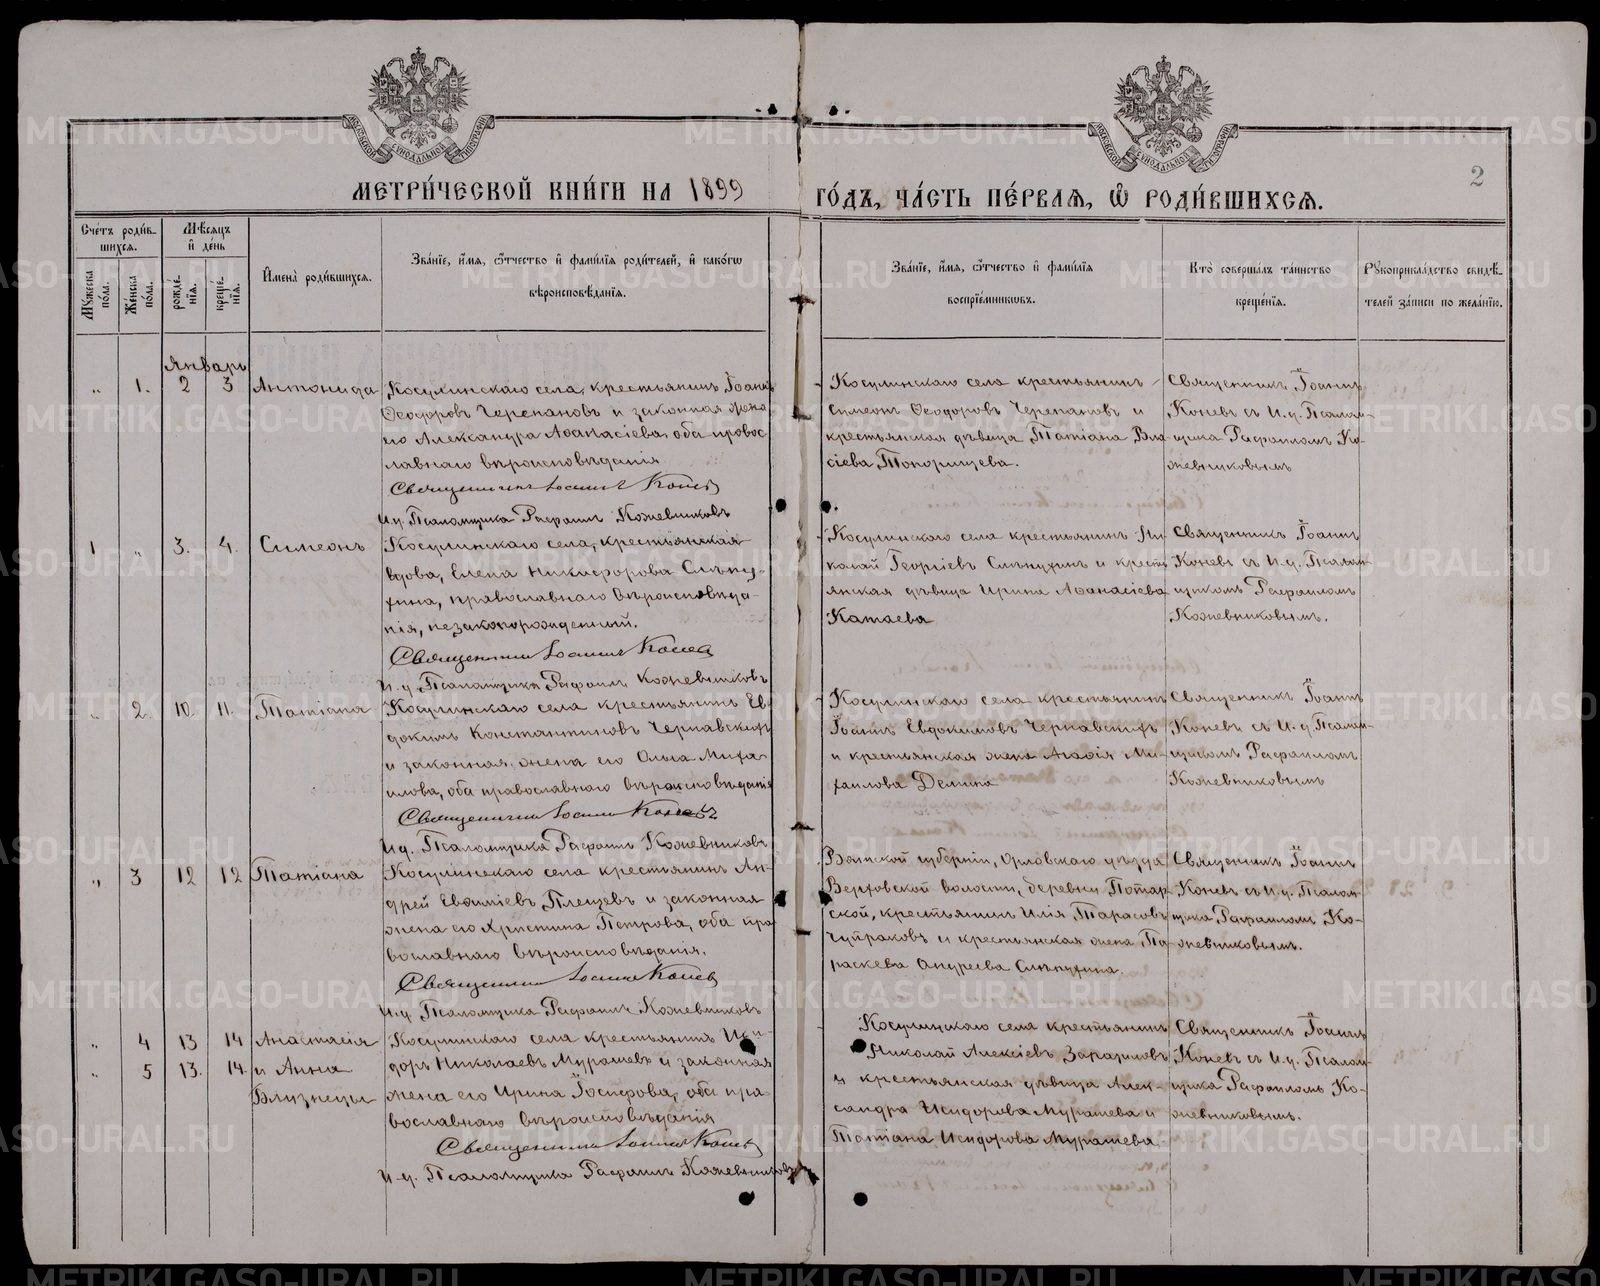 МЕТРИ́ЧЕСКОЙ КНИ́ГИ НА 1899
ГО́ДЪ, ЧА́СТЬ ПЕ́РВАѦ, Ѽ РОДИ́ВШИХСѦ.
2
Сче́тъ роди́в-
шихсѧ.
Мѣ́сѧцъ
и҆ де́нь
Мꙋ́жеска
по́ла.
Же́нска
по́ла.
рожде́-
нїѧ.
креще́-
нїѧ.
И҆мена̀ роди́вшихсѧ.
Зва́нїе, и҆́мѧ, ѻ҆́тчество и҆ фами́лїѧ роди́телей, и҆ како́гѡ
вѣроисповѣ́данїѧ.
Зва́нїе, и҆́мѧ, ѻ҆́тчество и҆ фами́лїѧ
воспрїе́мниковъ.
Кто̀ соверша́лъ та́инство
креще́нїѧ.
Рꙋкоприкла́дство свидѣ́-
телей за́писи по жела́нїю.
Январь
„ 1. 2 3 Антонида
Косулинскаго села, крестьянинъ Іоаннъ
Ѳеодоровъ Черепановъ и законная жена
его Александра Аѳанасіева, оба правос
лавнаго вѣроисповѣданія
Священникъ Іоаннъ Коневъ
И.д. Псаломщика Рафаилъ Кожевниковъ
Косулинскаго села крестьянинъ
Симеонъ Ѳеодоровъ Черепановъ и
крестьянская дѣвица Татіана Вла
сіева Топорищева.
Священникъ Іоаннъ
Коневъ съ И.д. Псалом-
щика Рафаиломъ Ко-
жевниковымъ
1 „ 3. 4. Симеонъ
Косулинскаго села, крестьянская
вдова, Елена Никифорова Слѣпу-
хина, православнаго вѣроисповѣда-
нія, незаконорожденный.
Священникъ Іоаннъ Коневъ
И.д. Псаломщика Рафаилъ Кожевниковъ
Косулинскаго села крестьянинъ Ни-
колай Георгіевъ Слѣпухинъ и кресть
янская дѣвица Ирина Аѳанасіева
Катаева
Священникъ Іоаннъ
Коневъ съ И.д. Псалом
щикомъ Рафаиломъ
Кожевниковымъ.
„ 2. 10. 11. Татіана
Косулинскаго села крестьянинъ Ев
докимъ Константиновъ Чернавскихъ
и законная жена его Ольга Миха
илова, оба православнаго вѣроисповѣданія
Священникъ Іоаннъ Коневъ
И.д. Псаломщика Рафаилъ Кожевниковъ
Косулинскаго села крестьянинъ
Іоаннъ Евдокимовъ Чернавскихъ
и крестьянская жена Агаѳія Ми-
хаилова Демина
Священникъ Іоаннъ
Коневъ съ И.д Псалом-
щикомъ Рафаиломъ
Кожевниковымъ
„ 3 12 12 Татіана
Косулинскаго села крестьянинъ Ан-
дрей Евѳиміевъ Плещевъ и законная
жена его Христина Петрова, оба пра
вославнаго вѣроисповѣданія.
Священникъ Іоаннъ Коневъ
И.д. Псаломщика Рафаилъ Кожевниковъ
Вятской губерніи, Орловскаго уѣзда
Верховской волости, деревни
ской, крестьянинъ Илія Тарасовъ
и крестьянская жена Па
раскева Андреева Слѣпухина.
Священникъ Іоаннъ
Коневъ съ И.д. Псалом-
щика Рафаиломъ Ко-
жевниковымъ.
„ 4 13 14 Анастасія
„ 5 13. 14. и Анна
Близнецы
Косулинскаго села крестьянинъ Иси-
доръ Николаевъ Мурашевъ и законная
жена его Ирина Іосифова, оба пра
вославнаго вѣроисповѣданія
Священникъ Іоаннъ Коневъ
И.д. Псаломщика Рафаилъ Кожевниковъ
Косулинскаго села крестьянинъ
Николай Алексіевъ
и крестьянская дѣвица Алек-
сандра Исидорова Мурашева и
Татіана Исидорова Мурашева
Священникъ Іоаннъ
Коневъ съ И.д. Псалом-
щика Рафаиломъ Ко-
жевниковымъ.
METRIKI.GASO-URAL.RU